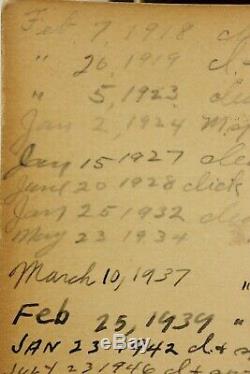 Feb 7, 1918 cl
" 20, 1919 cl
" 5, 1923 cle
Jan 2, 1924
Jan 15 1927 cle
June 20 1928 click
Jan 25 1932 cle
May 23 1934
March 10, 1937 "
Feb 25, 1939 "
JAN 23 1942 cl + 
JULY 23 1946 cl +